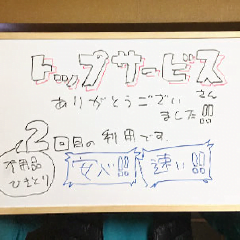 トップサービスさん
ありがとうござい
ました!!
2回目の利用です
不用品
ひきとり
安心!! 速い!!